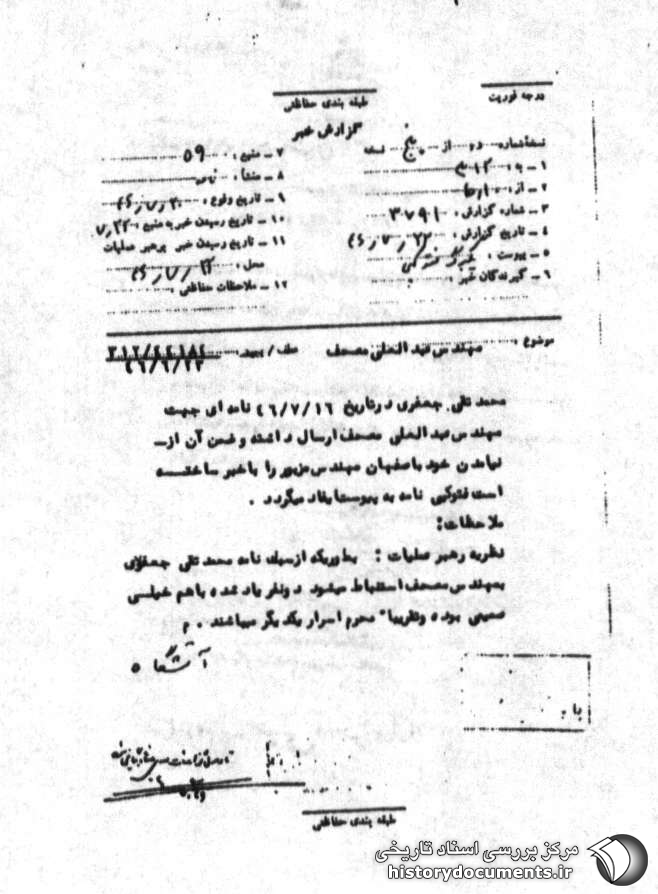 درجه فوریت
طبقه بندی حفاظتی
گزارش خبر
نسخه شماره دو از پنج نسخه
۱ - به ۳۱۲
۲ - از
۳ - شماره گزارش ۳۷۹۱
۴ - تاریخ گزارش ۴۶/۷/۲۲
۵ - پیوست
۶ - گیرندگان خبر
۷ - منبع ۵۹
۸ - منشأ
۹ - تاریخ وقوع ۴۶/۷/۲۰
۱۰ - تاریخ رسیدن خبر به منبع
۱۱ - تاریخ رسیدن خبر برهبر عملیات
محل ۴۶/۷/۲۲
۱۲ - ملاحظات حفاظتی
موضوع مهندس عبدالعلی مصحف عطف / پیرو ۳۱۲/۴۴۱۸۴
۴۶/۶/۲۲
محمد تقی جعفری درتاریخ ۴۶/۷/۱۶ نامه ای جهت
مهندس عبدالعلی مصحف ارسال داشته و ضمن آن از-
نیامدن خود باصفهان مهندس مزبور را باخبر ساخته
است فتوکپی نامه به پیوست ایفاد میگردد .
ملاحظات:
نظریه رهبر عملیات : بطوریکه از سبک نامه محمد تقی جعفری
بمهندس مصحف استنباط میشود دونفر یاد شده باهم خیلی
صمیمی بوده وتقریبا" محرم اسرار یکدیگر میباشند . م
با
طبقه بندی حفاظتی
مرکز بررسی اسناد تاریخی
historydocuments.ir